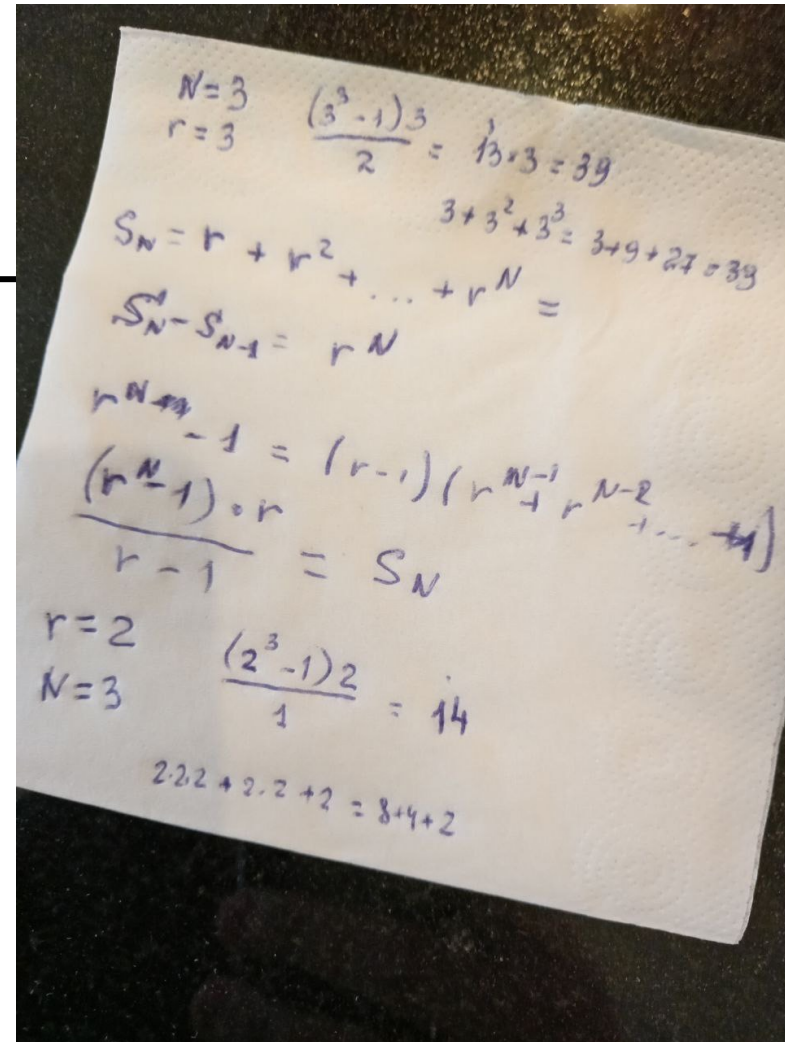 N=3
r=3
(3³-1)3 / 2 = 13·3 = 39
3+3²+3³ = 3+9+27=39
S_N = r + r² + ... + r^N =
S_N - S_{N-1} = r^N
r^N - 1 = (r-1)(r^{N-1} + r^{N-2} + ... +1)
(r^N-1)·r / r-1 = S_N
r=2
N=3
(2³-1)2 / 1 = 14
2·2·2 + 2·2 + 2 = 8+4+2